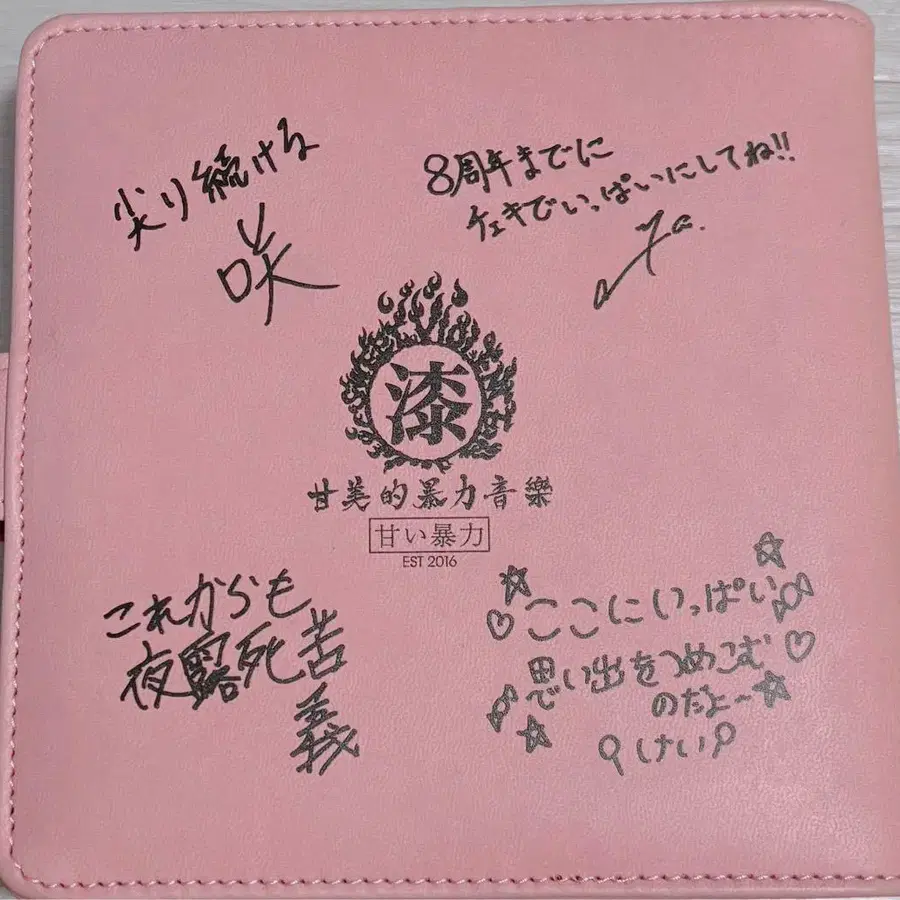 尖り続ける
咲
8周年までに
チェキでいっぱいにしてね!!
漆
甘美的暴力音樂
甘い暴力
EST 2016
これからも
夜露死苦
義
ここにいっぱい
思い出をつめこむ
のだよー
けい